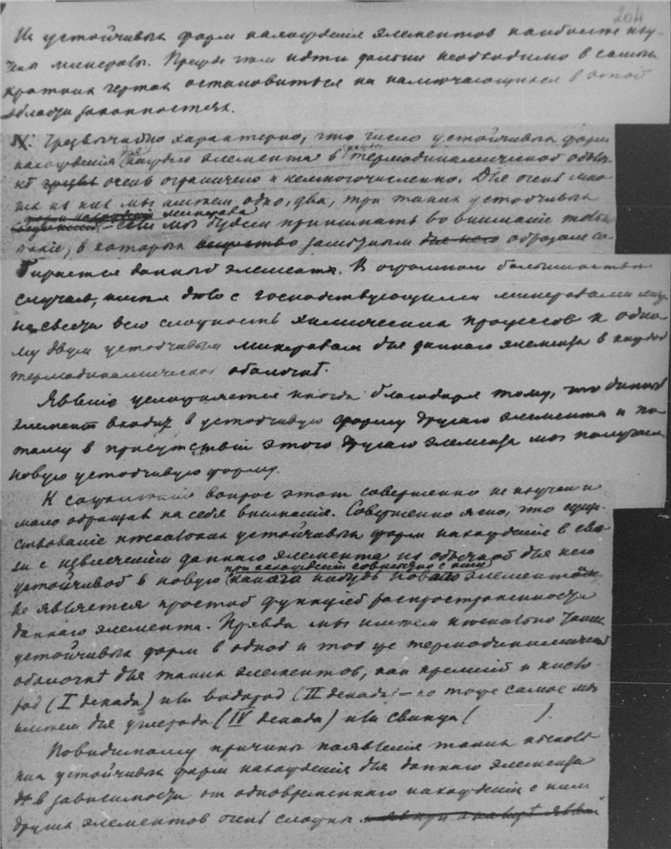 204
Из устойчивых форм нахождения элементов наиболее изу-
чены минералы. Прежде чем идти дальше необходимо в самых
кратких чертах остановиться на намечающихся в этой
области законностях.
Чрезвычайно характерно, что число устойчивых форм
нахождения каждого элемента в каждой термодинамической оболоч-
кѣ очень ограничено и немногочисленно. Для очень мно-
гих из них мы имеем одно, два, три таких устойчивых
минерала если мы будем принимать во внимание только
такие, в которых заметным образом со-
бирается данный элемент. В огромном большинстве
случаев, имея дело с господствующими минералами мож-
но свести всю сложность химических процессов к одно-
му двум устойчивым минералам для данного элемента в каждой
термодинамической оболочкѣ.
Явление усложняется иногда благодаря тому, что данный
элемент входит в устойчивую форму другого элемента и по-
тому в присутствии этого другого элемента мы получаем
новую устойчивую форму.
К сожалению вопрос этот совершенно не изучен и
мало обращал на себя внимания. Совершенно ясно, что суще-
ствование нескольких устойчивых форм нахождения в свя-
зи с извлечением данного элемента из обычной для него
устойчивой в новую при нахождении совместно с ним какого нибудь нового элемента
не является простой функцией распространенности
данного элемента. Правда мы имеем несколько таких
устойчивых форм в одной и той же термодинамической
оболочкѣ для таких элементов, как кремний и кисло-
род (I декада) или водород (II декада) – но тоже самое мы
имеем для углерода (IV декада) или свинца ( ).
Повидимому причины появления таких несколь-
ких устойчивых форм нахождения для данного элемента
в зависимости от одновременного нахождения с ним
других элементов очень сложны